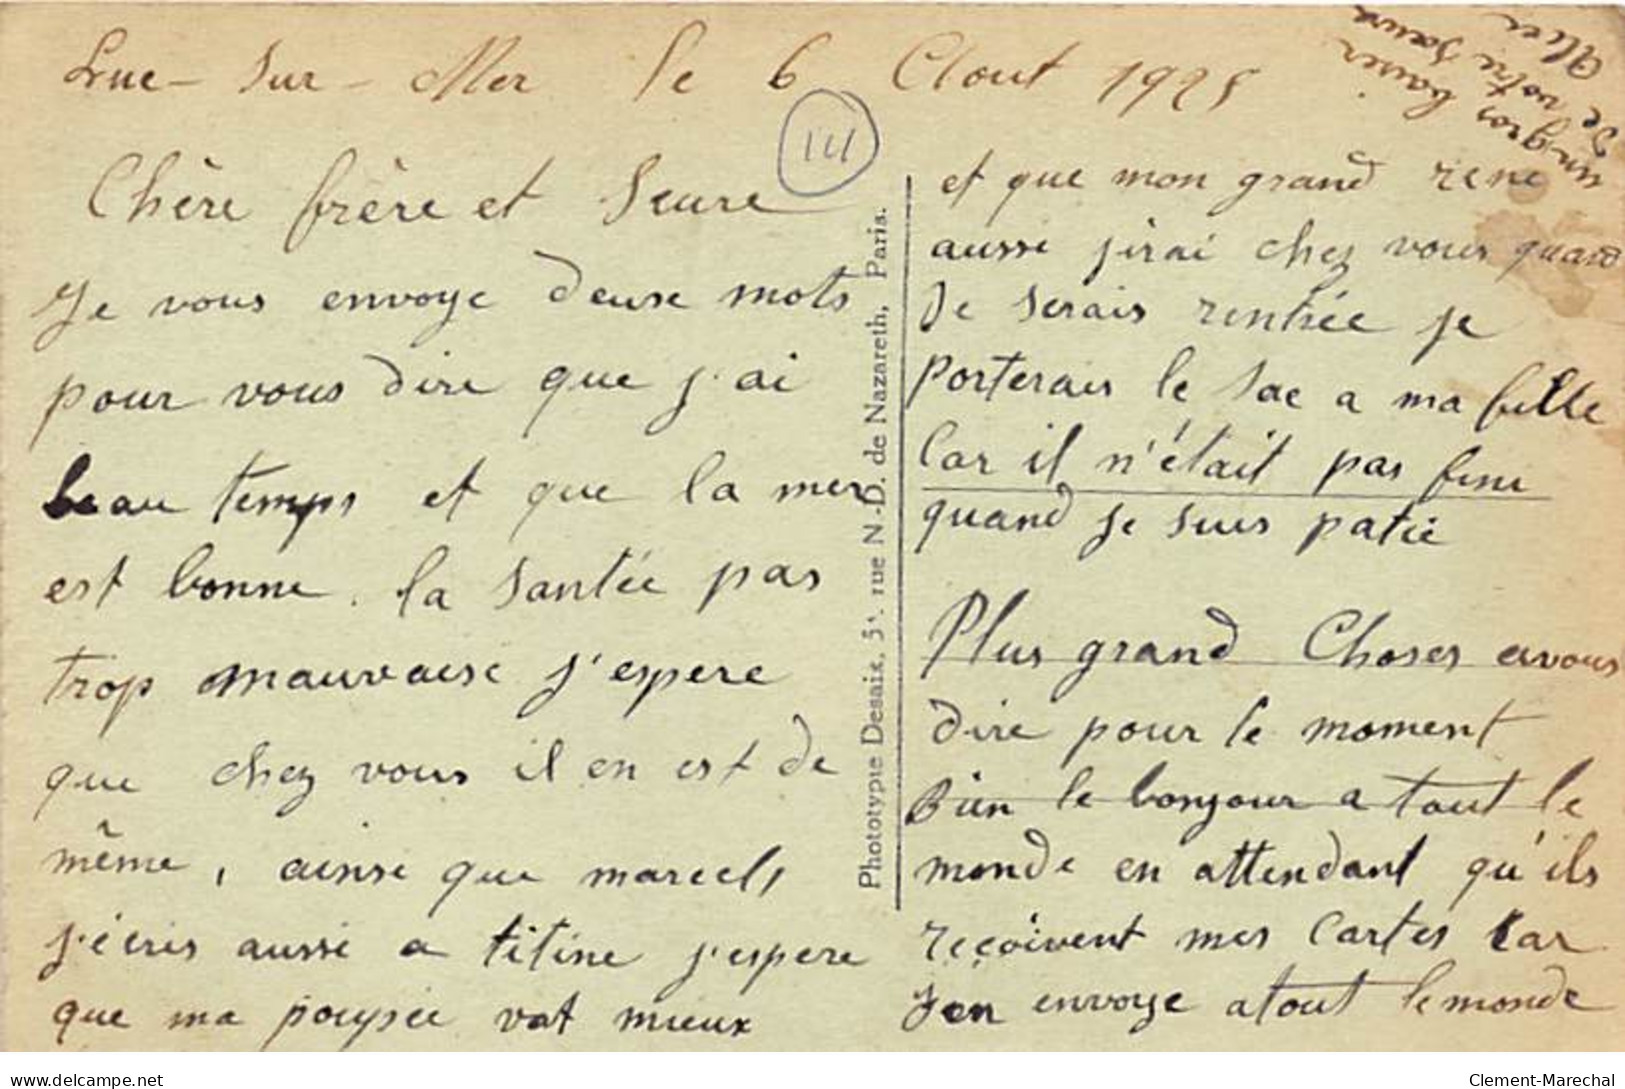 Luc-sur-Mer le 6 Aout 1925
141
Chère frère et Seure
Je vous envoye deuse mots
pour vous dire que j'ai
beau temps et que la mer
est bonne. la santée pas
trop mauvaise j'espere
que chez vous il en est de
même, ainsi que marcels
j'écris aussi a titine j'espere
que ma poupée vat mieux
Phototypie Desaix, 51. rue N.-D. de Nazareth, Paris.
et que mon grand rene
aussi jirai chez vous quand
Je serais rentrée je
porterais le sac a ma fille
Car il n'était pas fini
quand je suis patie
Plus grand Choses avous
dire pour le moment
Bien le bonjour a tout le
monde en attendant qu'ils
reçoivent mes Cartes Car
j'en envoye atout le monde
un gros baiser
de votre sœure
Alice
delcampe.net
Clement-Marechal